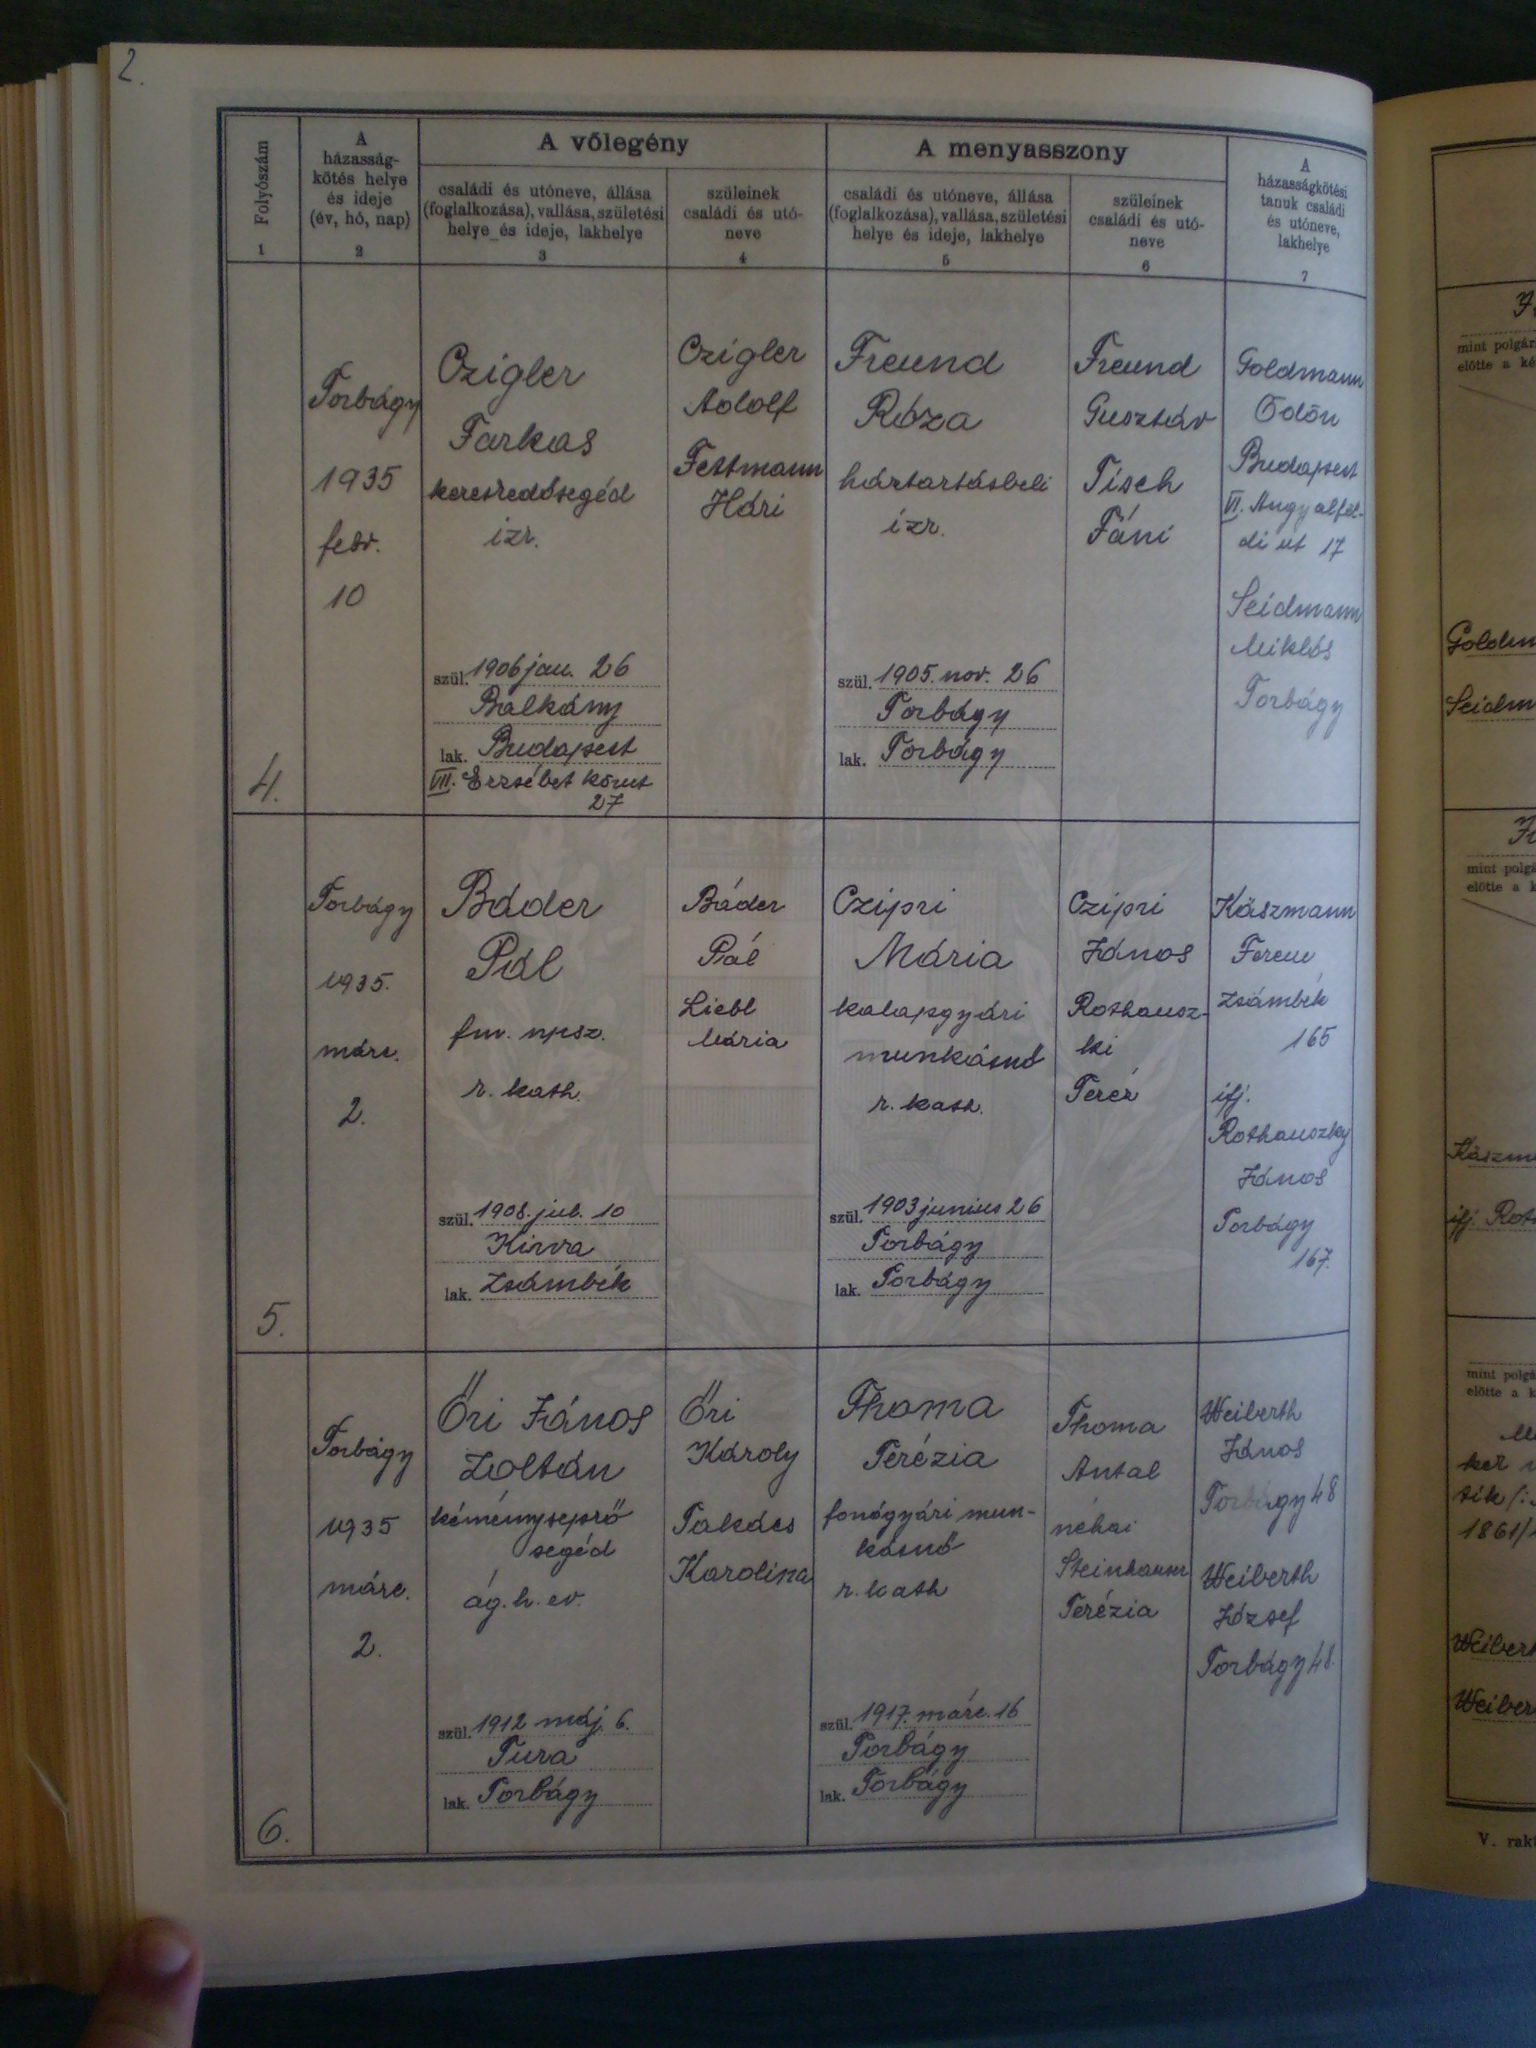 2.
Folyószám
1
A
házasság-
kötés helye
és ideje
(év, hó, nap)
2
A vőlegény
családi és utóneve, állása
(foglalkozása), vallása, születési
helye és ideje, lakhelye
3
szüleinek
családi és utó-
neve
4
A menyasszony
családi és utóneve, állása
(foglalkozása), vallása, születési
helye és ideje, lakhelye
5
szüleinek
családi és utó-
neve
6
A
házasságkötési
tanuk családi
és utóneve,
lakhelye
7
4.
Torbágy
1935
febr.
10
Czigler
Farkas
kereskedősegéd
izr.
szül. 1906 jan. 26
Balkány
lak. Budapest
VII. Erzsébet körut
27
Czigler
Adolf
Fettmann
Hári
Freund
Róza
háztartásbeli
izr.
szül. 1905. nov. 26
Torbágy
lak. Torbágy
Freund
Gusztáv
Tisch
Fáni
Goldmann
Ödön
Budapest
VI. Angyalföl-
di ut 17
Seidmann
Miklós
Torbágy
5.
Torbágy
1935.
márc.
2.
Báder
Pál
fm. npsz.
r. kath.
szül. 1908. jul. 10
Kirva
lak. Zsámbék
Báder
Pál
Liebl
Mária
Czipri
Mária
kalapgyári
munkásnő
r. kath.
szül. 1903 junius 26
Torbágy
lak. Torbágy
Czipri
János
Rothausz-
ki
Teréz
Kászmann
Ferenc
Zsámbék
165
ifj.
Rothauszky
János
Torbágy
167.
6.
Torbágy
1935
márc.
2.
Őri János
Zoltán
kéményseprő
segéd
ág. h. ev.
szül. 1912 máj. 6.
Tura
lak. Torbágy
Őri
Károly
Takács
Karolina
Thoma
Terézia
fonógyári mun-
kásnő
r. kath
szül. 1917. márc. 16
Torbágy
lak. Torbágy
Thoma
Antal
néhai
Terézia
Weiberth
János
Torbágy 48
Weiberth
József
Torbágy 48.
mint polgár
előtte a ké
Goldm
Seidm
mint polgá
előtte a k
Kászm
ifj. Rot
mint polgá
előtte a k
1861/
Weiber
Weiber
V. rak